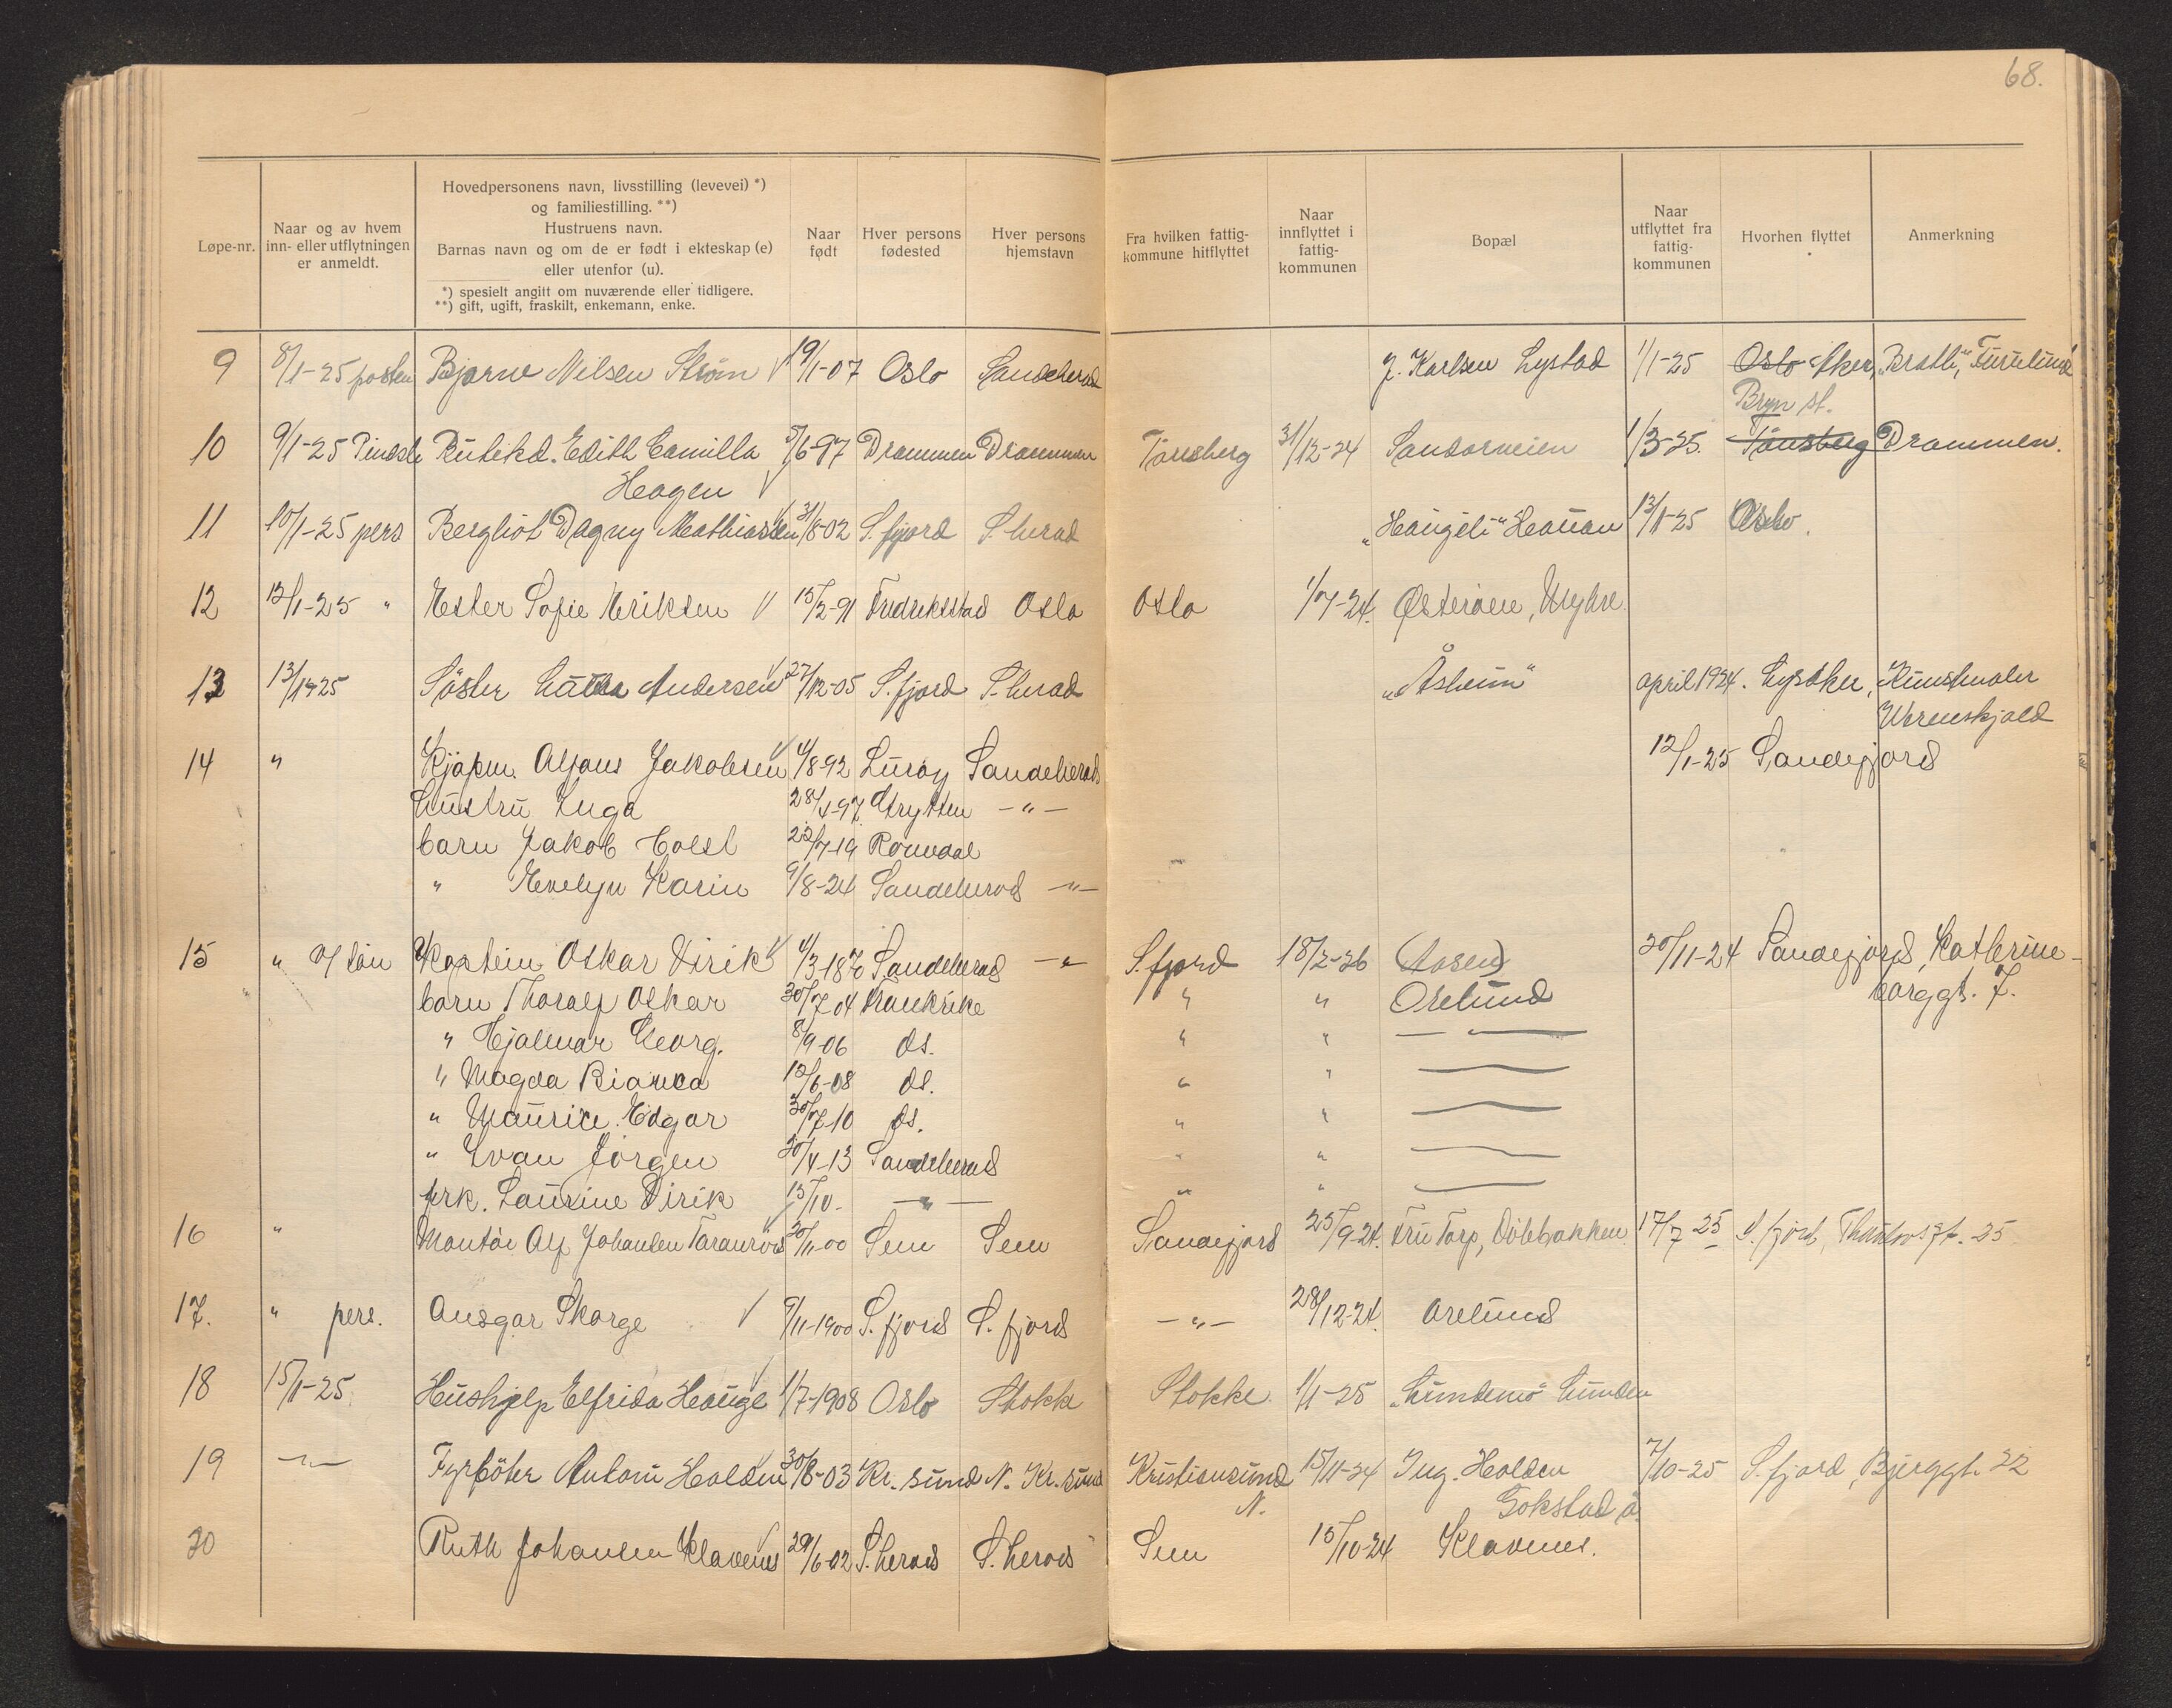 68.
Løpe-nr.
Naar og av hvem
inn- eller utflytningen
er anmeldt.
Hovedpersonens navn, livsstilling (levevei) *)
og familiestilling. **)
Hustruens navn.
Barnas navn og om de er født i ekteskap (e)
eller utenfor (u).
*) spesielt angitt om nuværende eller tidligere.
**) gift, ugift, fraskilt, enkemann, enke.
Naar
født
Hver persons
fødested
Hver persons
hjemstavn
Fra hvilken fattig-
kommune hitflyttet
Naar
innflyttet i
fattig-
kommunen
Bopæl
Naar
utflyttet fra
fattig-
kommunen
Hvorhen flyttet
Anmerkning
9 8/1-25 posten Bjarne Nilsen Strøm 19/1-07 Oslo Sandeherad J. Karlsen Lystad 1/1-25 Oslo Aker, Bratli, "Furulund"
Bryn st.
10 9/1-25 Edith Camilla 5/6-97 Drammen Drammen Tönsberg 31/12-24 Sandarveien 1/3-25. Tönsberg Drammen.
Hagen
11 10/1-25 pers Bergliot Dagny Mathiassen 31/8-02 S.fjord S.herad "Haugeli" Hauan 13/1-25 Oslo.
12 12/1-25 " Ester Sofie Eriksen 15/2-91 Fredrikstad Oslo Oslo 1/7-24. Østerøen, Myhre.
13 13/1-25 Söster Andersen 27/12-05 S.fjord S.herad "Åsheim" april 1924. Lysaker, Kunstmaler
Werenskjold
14 " Kjøpm. Alfons Jakobsen 4/8-92 Lurøy Sandeherad 12/1-25 Sandefjord
hustru Inga 28/1-97. Strytten -"-
barn Jakob 23/7-19 Romsdal
" Evelyn Karin 9/8-24 Sandeherad -"-
15 " Kaptein Oskar Virik 4/3-1870 Sandeherad -"- S.fjord 18/2-26 (Aasen) 20/11-24 Sandefjord, Kathrine-
barn Thoralf Oskar 30/7 04 Frankrike " " Orelund borggt. 7.
" Hjalmar Georg. 8/9-06 ds. " "
" Magda Bianca 12/6-08 ds. " "
" Maurice Edgar 30/7-10 ds. " "
" Ivan Jörgen 30/4-13 Sandeherad " "
frk. Laurine Virik 15/10- -"- " "
16 " Montör Alf Johansen Taranröd 20/11-00 Sem Sem Sandefjord 25/9-24. Fru Torp, Dölebakken 17/7 25 S.fjord, 25
17. " pers. Ansgar Skorge 9/11-1900 S.fjord S.fjord -"- 28/12-24. Orelund
18 15/1-25 Hushjelp Elfrida Hauge 1/7-1908 Oslo Stokke Stokke 1/1-25 "Lundemo" Lunden
19 -"- Fyrböter Antoni Holden 30/8-03 Kr.sund N. Kr.sund Kristiansund 15/11-24 Ing. Holden 7/10-25 S.fjord, Bjerggt. 22
N. Gokstad ö.
20 Ruth Johansen Klavenes 29/6-02 S.herad S.herad Sem 15/10-24 Klavenes.